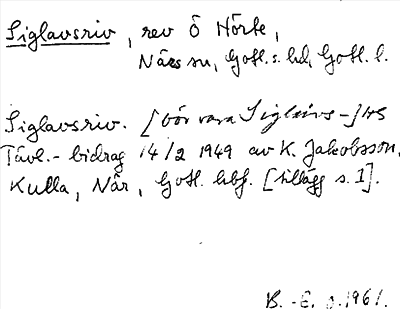 Siglavsriv, rev Ö Hörte,
Närs sn, Gotl. s. hd, Gotl. l.
Siglavsriv. [bör vara Siglairs-] HS
Tävl.- bidrag 14/2 1949 av K. Jakobsson,
Kulla, När, Gotl. hbf. [tillägg s. 1].
B. -E. J. 1961.